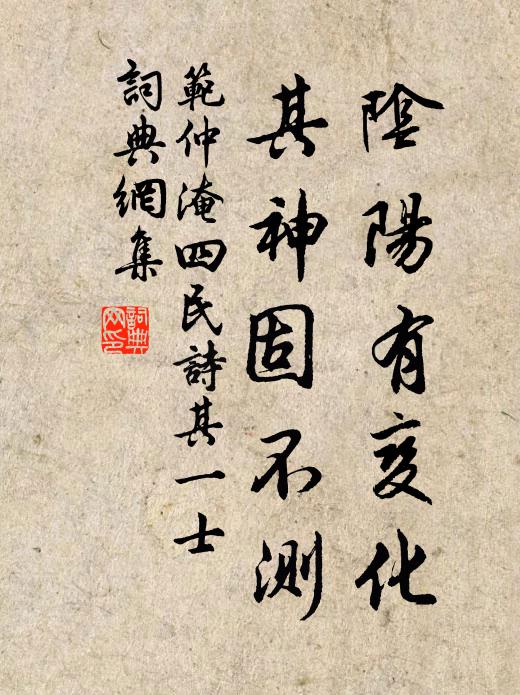 陰陽有變化
其神固不測
範仲淹四民詩其一士
詞典網集
詞典網印